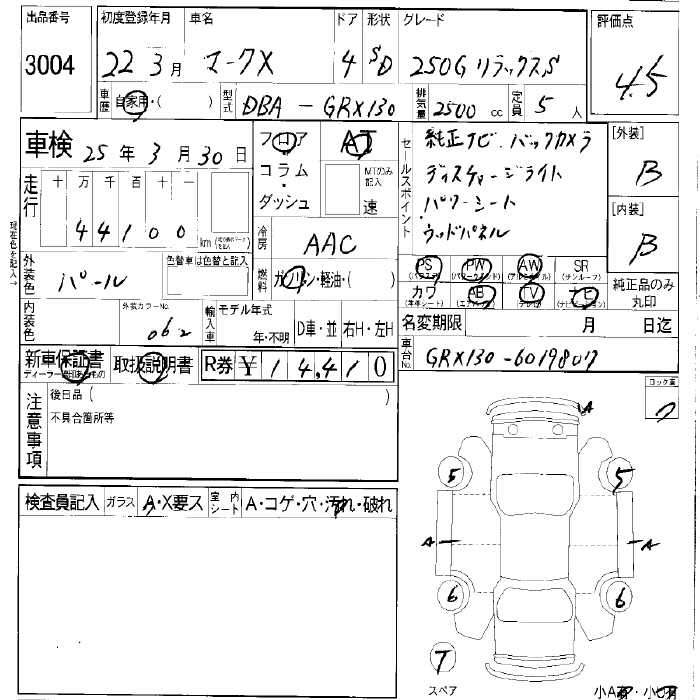 出品番号 初度登録年月 車名 ドア 形状 グレード 評価点
3004 22 3月 マークX 4 SD 250G リラックスS 4.5
車歴 自家用・( ) 型式 DBA - GRX130 排気量 2500 cc 定員 5 人
車検 25年 3月 30日 フロア・コラム・ダッシュ AT MTのみ記入 速
セールスポイント 純正ナビ バックカメラ
ディスチャージライト
パワーシート
ウッドパネル
[外装] B
[内装] B
走行 十 万 千 百 十 一
4 4 1 0 0 km
冷房 AAC
外装色 パール 色替車は色替と記入 燃料 ガソリン・軽油・( )
PS PW (パワーウインド) AW (アルミホイール) SR (サンルーフ)
カワ (本革シート) AB (エアバッグ) TV (テレビ) ナビ
純正品のみ丸印
内装色 外装カラーNo. 062 輸入車 モデル年式 年・不明 D車・並 右H・左H
名変期限 月 日迄
新車保証書 取扱説明書 R券 ¥ 1 4,4 1 0
車台No. GRX130-6019807
注意事項 後日品 ( )
不具合箇所等
検査員記入 ガラス A・X要ス 室内シート A・コゲ・穴・汚れ・破れ
A
5 5
A A
6 6
T
スペア